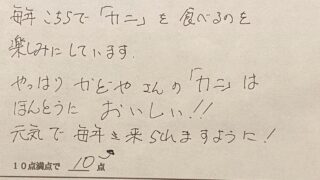 毎年 こちらで「カニ」を 食べるのを
楽しみにしています.
やっぱり かどや さんの「カニ」は
ほんとうに おいしい!!
元気で 毎年 来られますように!
10点満点で 10 点